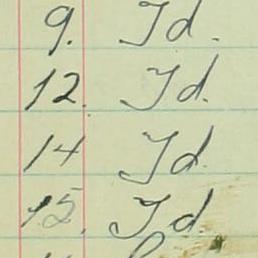 9. Id.
12. Id.
14 Id.
15. Id